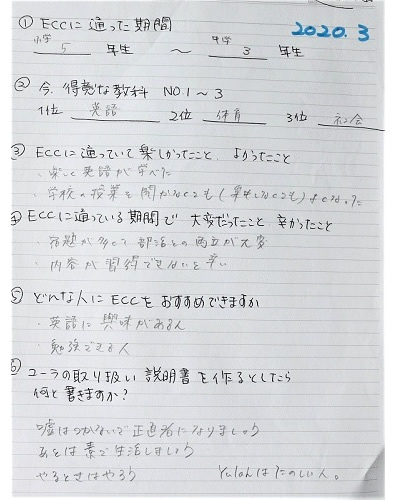 2020.3
① ECCに通った期間
小学 5 年生 ～ 中学 3 年生
② 今、得意な教科 NO.1～3
1位 英語 2位 体育 3位 社会
③ ECCに通っていて楽しかったこと よかったこと
・楽しく英語が学べた
・学校の授業を聞かなくても
④ ECCに通っている期間で 大変だったこと 辛かったこと
・宿題が多くて部活との両立が大変
・内容が習得できないと辛い
⑤ どんな人にECCをおすすめできますか
・英語に興味がある人
・勉強できる人
⑥ ユーラの取り扱い説明書を作るとしたら
何と書きますか？
嘘はつかないで正直者になりましょう
あとは素で生活しましょう
やるときはやろう
Yulaんはたのしい人。